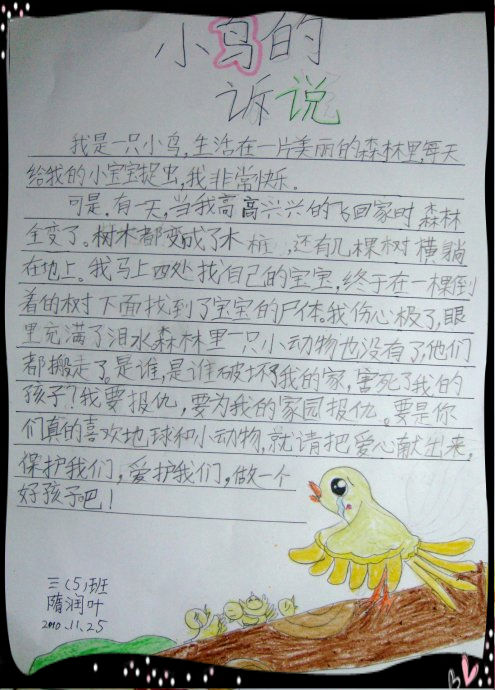 小鸟的
诉说
我是一只小鸟,生活在一片美丽的森林里,每天
给我的小宝宝捉虫,我非常快乐。
可是,有一天,当我高高兴兴的飞回家时森林
全变了。树木都变成了木桩,还有几棵树横躺
在地上。我马上四处找自己的宝宝,终于在一棵倒
着的树下面找到了宝宝的尸体。我伤心极了,眼
里充满了泪水森林里一只小动物也没有了,他们
都搬走了。是谁,是谁破坏我的家,害死了我的
孩子?我要报仇,要为我的家园报仇。要是你
们真的喜欢地球和小动物,就请把爱心献出来,
保护我们,爱护我们,做一个
好孩子吧!
三(5)班
隋润叶
2010.11.25